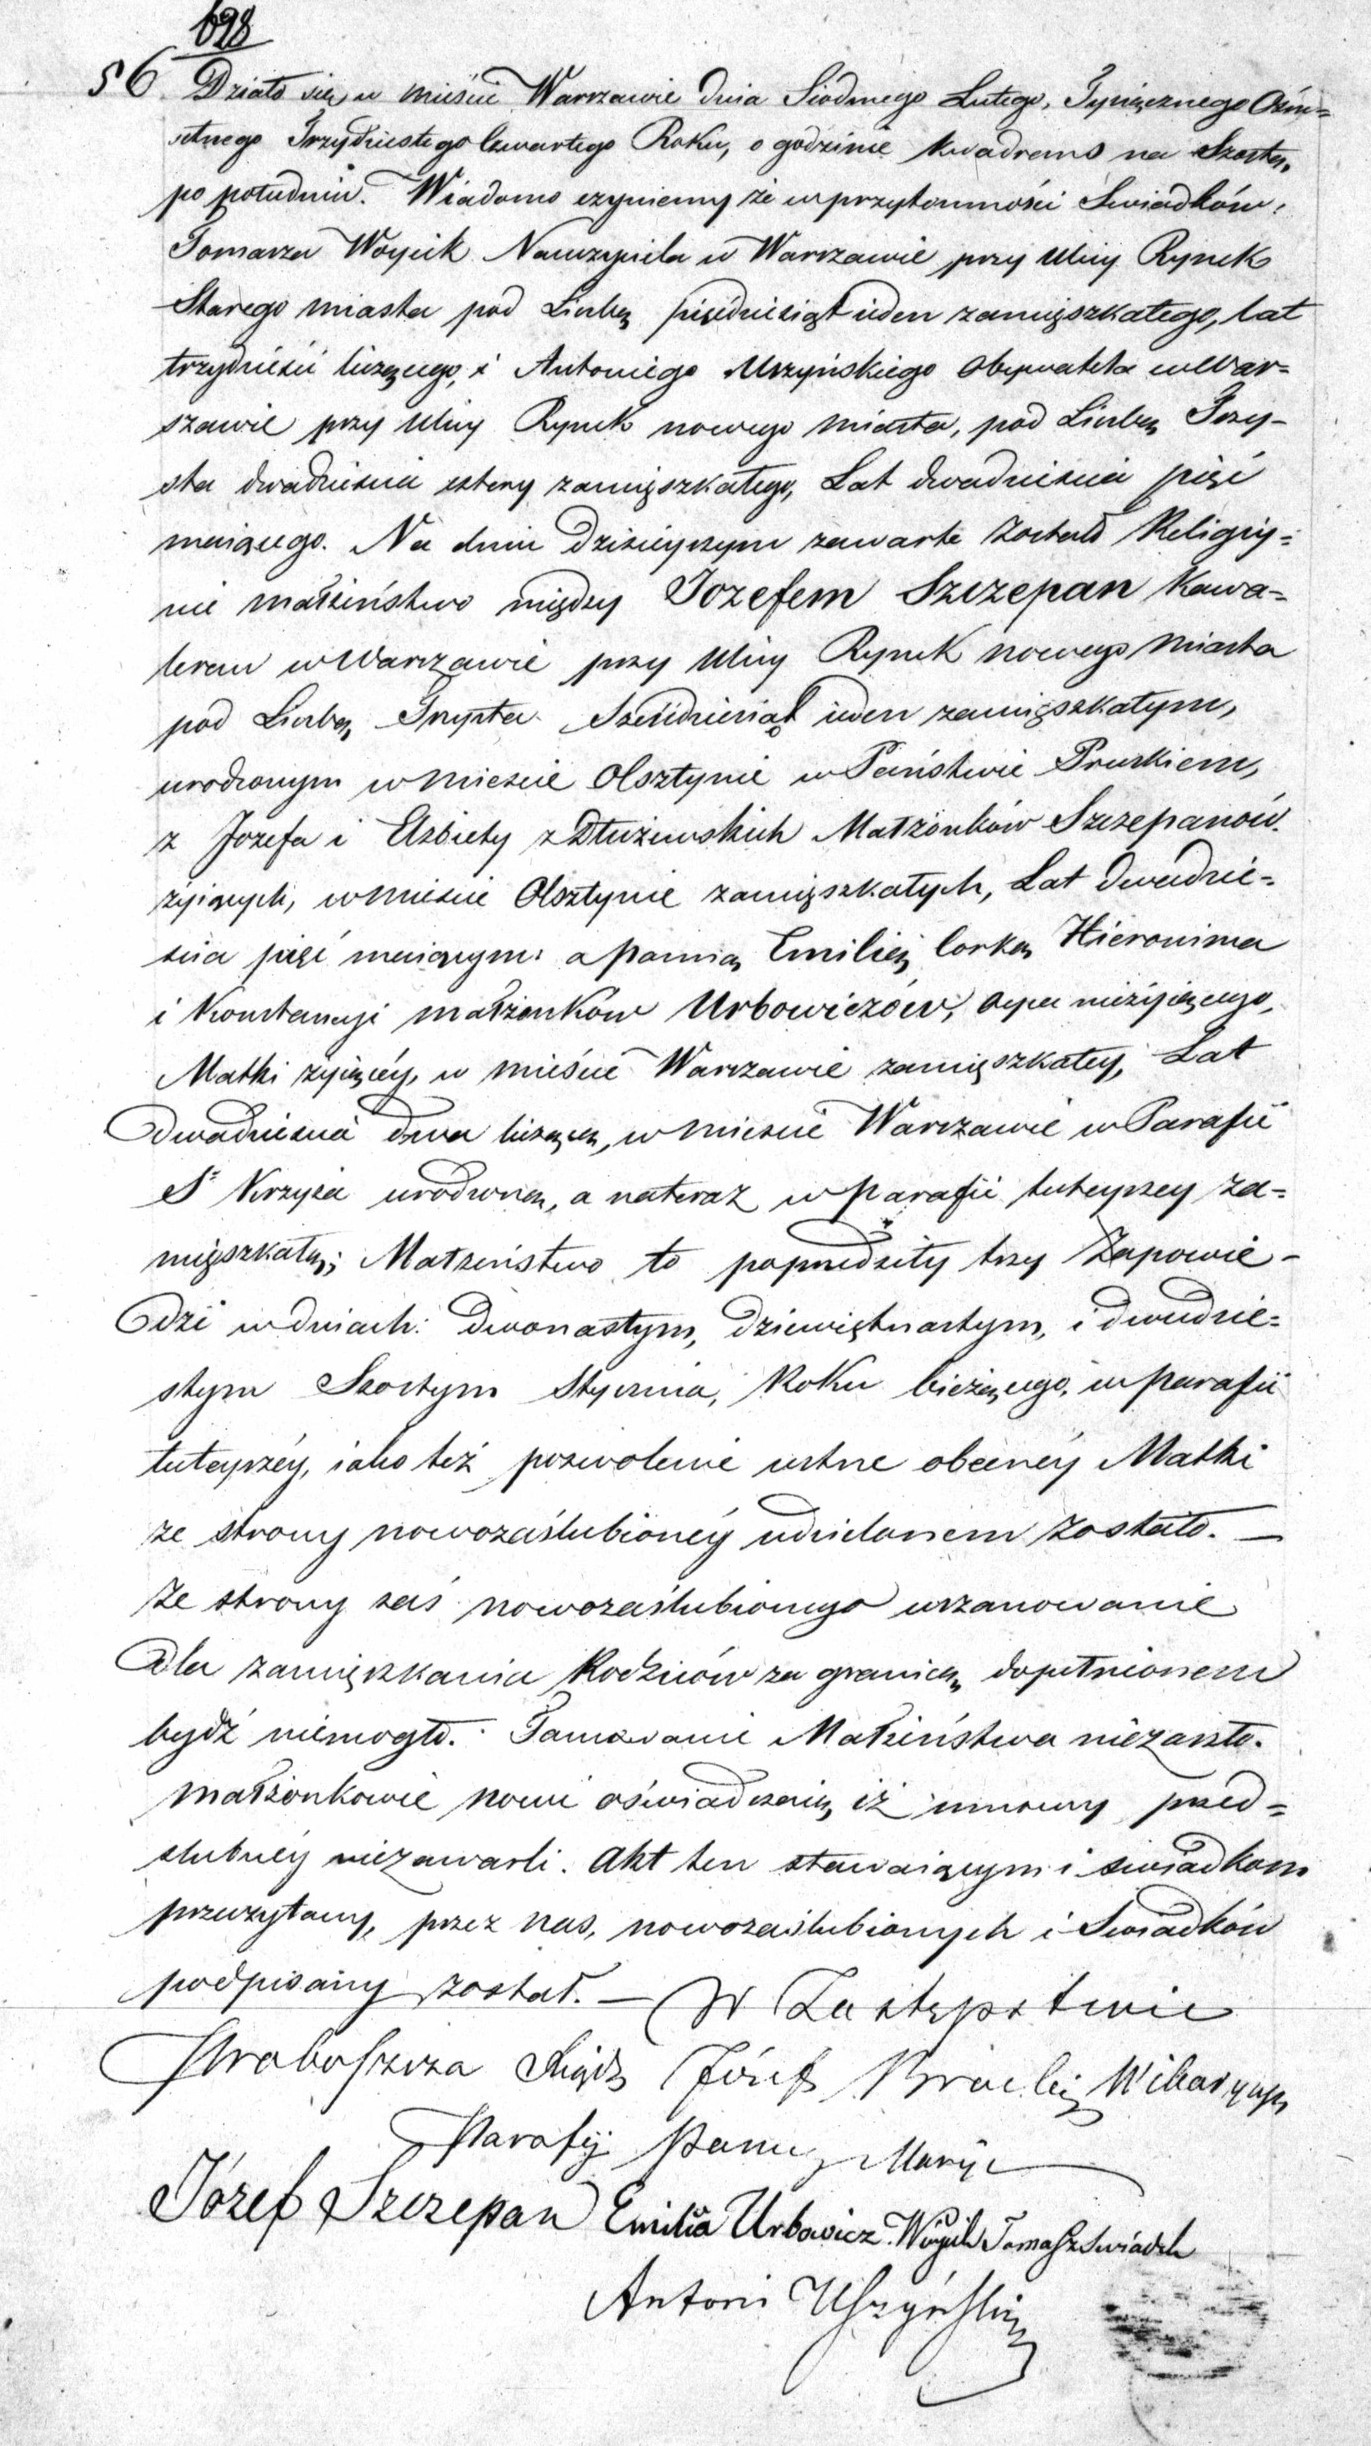 698
56 Działo się w mieście Warszawie dnia Siódmego Lutego, Tysiącznego Ośm=
setnego Trzydziestego Czwartego Roku, o godzinie kwadrans na Szostą,
po południu. Wiadomo czyniemy że w przytomności Swiadków:
Tomasza Woycik Nauczyciela w Warszawie przy Ulicy Rynek
Starego miasta pod Liczbą pięćdziesiąt ieden zamięszkałego, lat
trzydzieści liczącego, i Antoniego Uszyńskiego Obywatela w War=
szawie przy Ulicy Rynek nowego miasta, pod Liczbą Trzy-
sta dwadzieścia cztery zamięszkałego, Lat dwadzieścia pięć
maiącego. Na dniu dzisieyszym zawarte zostało Religiy=
nie małżeństwo między Jozefem Szczepan Kawa=
lerem w Warszawie przy Ulicy Rynek nowego Miasta
pod Liczbą Trzysta Sześćdziesiąt ieden zamięszkałym,
urodzonym w Mieście Olsztynie w Państwie Pruskiem,
z Jozefa i Elżbiety z Dłużewskich Małżonków Szczepanów.
żyiących, w Mieście Olsztynie zamięszkałych, Lat dwadzie=
ścia pięć maiącym: a Panną Emilią Corką Hieronima
i Konstancyi małżonków Urbowiczów, Oyca nieżyiącego,
Matki żyiącéy, w mieście Warszawie zamięszkałey, Lat
dwadzieścia dwa liczącą, w Mieście Warszawie w Parafii
Sº Krzyża urodzoną, a nateraz w Parafii tuteyszey za=
mięszkałą; Małżeństwo to poprzedziły trzy Zapowie-
dzi w dniach: dwonastym, dziewiętnastym, i dwudzie=
stym Szostym Stycznia, Roku bieżącego, w Parafii
tuteyszéy, iako też pozwolenie ustne obecnéy Matki
ze strony nowozaślubionéy udzielonem zostało. —
Ze strony zaś nowozaślubionego uszanowanie
dla zamięszkania Rodziców za granicą dopełnionem
bydź niemogło. Tamowanie Małżeństwa niezaszło.
małżonkowie nowi oświadczaią iż umowy przed=
slubnéy niezawarli. Akt ten stawaiącym i świadkom
przeczytany, przez nas, nowozaślubionych i Swiadków
podpisany został. — W Zastępstwie
Proboszcza Xiądz Józef Wikaryusz
Parafij Panny Maryi
Józef Szczepan Emilia Urbowicz. Woycik Tomasz świadek
Antoni Uszyński